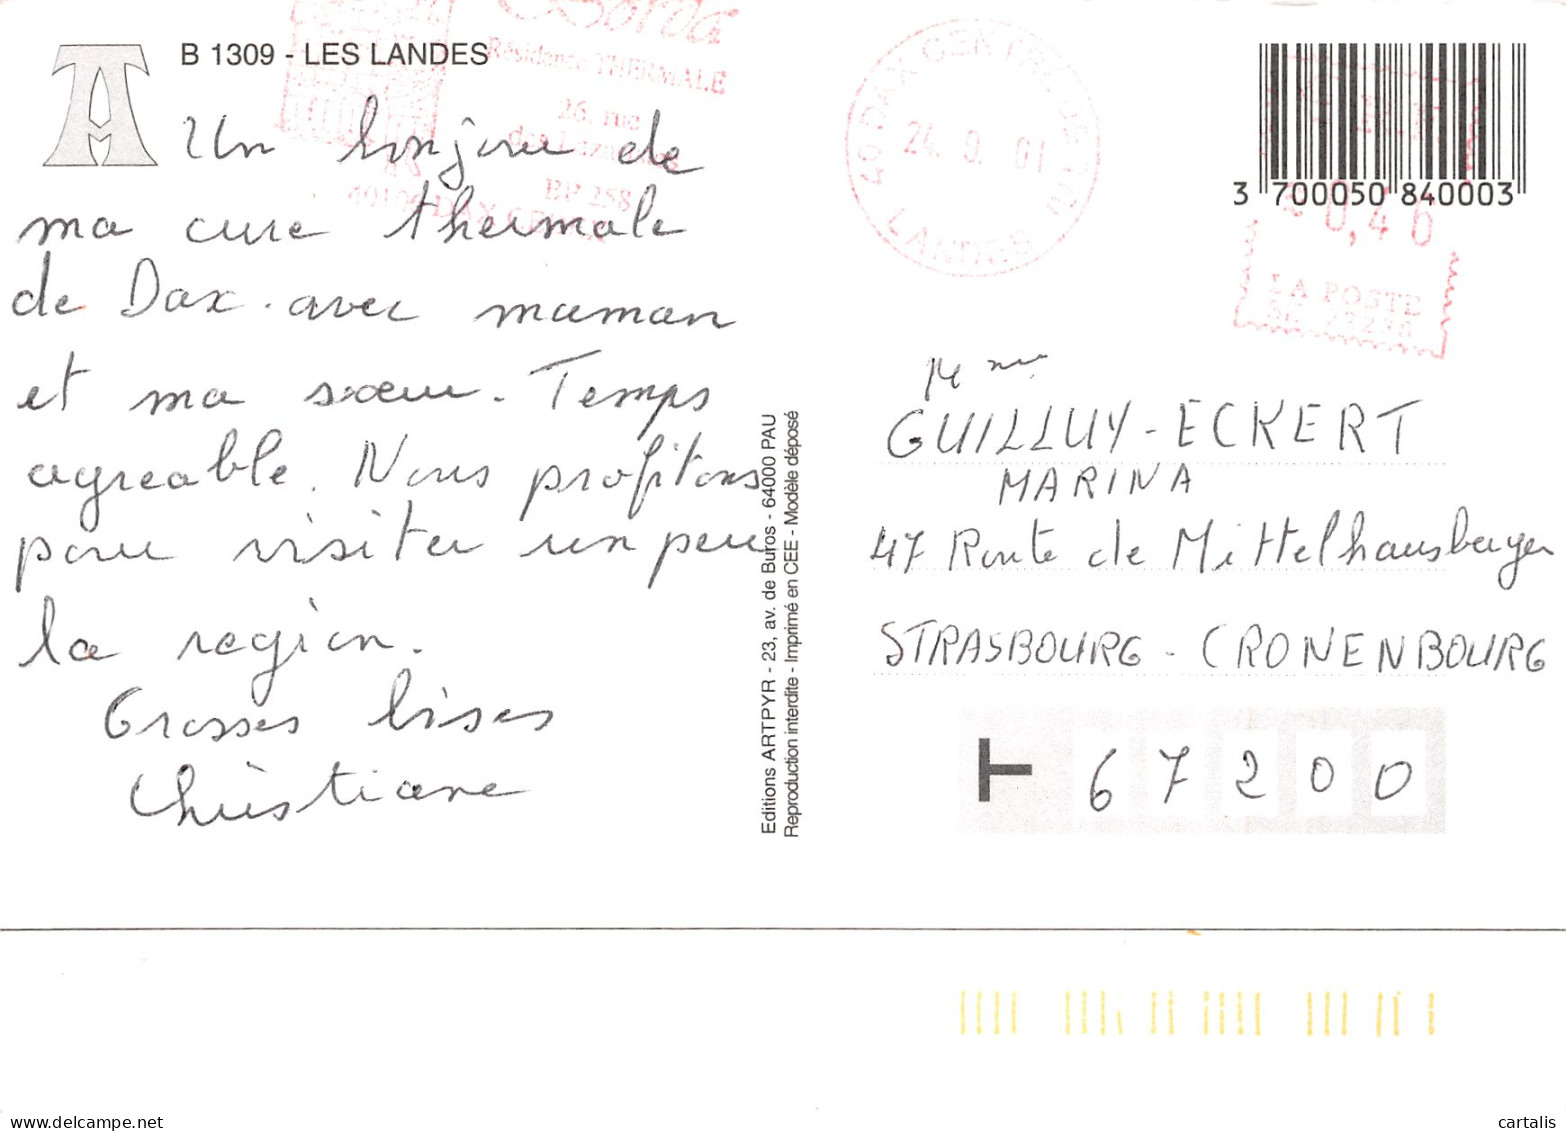 B 1309 - LES LANDES
Un bonjour de
ma cure thermale
de Dax. avec maman
et ma sœur. Temps
agreable. Nous profitons
pour visiter un peu
la region.
Grosses bises
Christiane
Editions ARTPYR - 23, av. de Buros - 64000 PAU
Reproduction interdite - Imprimé en CEE - Modèle déposé
Résidence THERMALE
26, rue
BP 258
40 DAX CENTRE
24. 9. 01
LANDES
3 700050 840003
0,46
LA POSTE
Mme
GUILLUY - ECKERT
MARINA
47 Route de Mittelhausberger
STRASBOURG - CRONENBOURG
67200
delcampe.net
cartalis